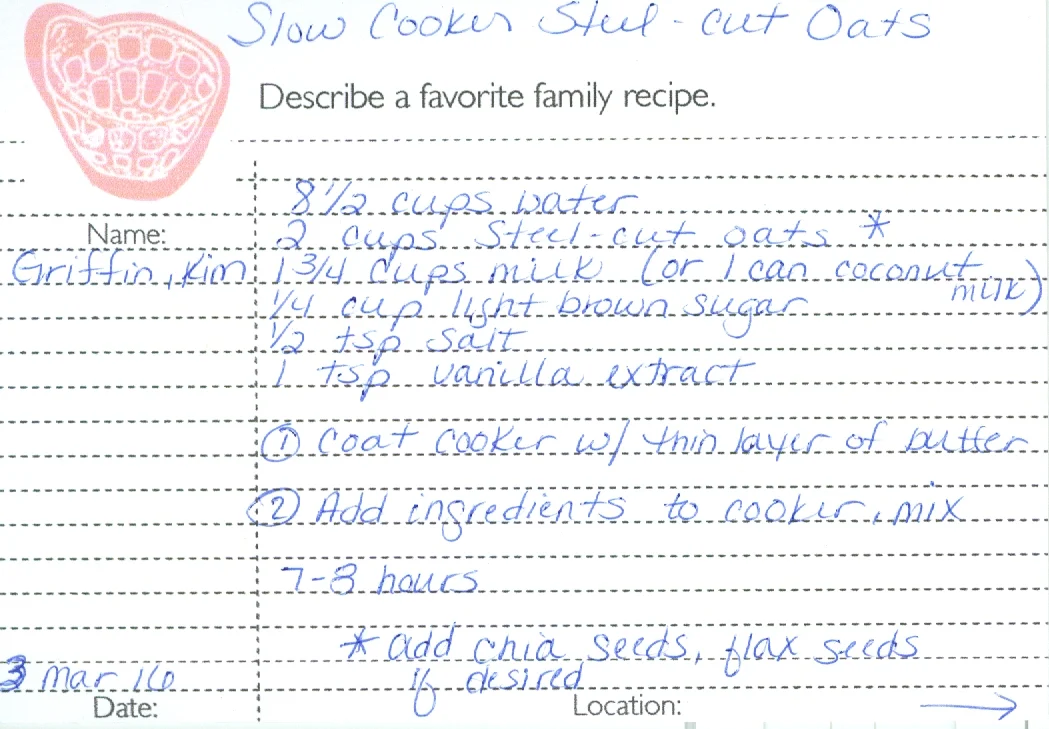 Slow Cooker Steel-cut Oats
Describe a favorite family recipe.
8 1/2 cups water
Name:
2 cups Steel-cut oats *
Griffin, Kim
1 3/4 cups milk (or 1 can coconut milk)
1/4 cup light brown sugar
1/2 tsp salt
1 tsp vanilla extract
① Coat cooker w/ thin layer of butter
② Add ingredients to cooker, mix
7-8 hours
* add chia seeds, flax seeds
if desired
3 Mar 16
Date:
Location:
→